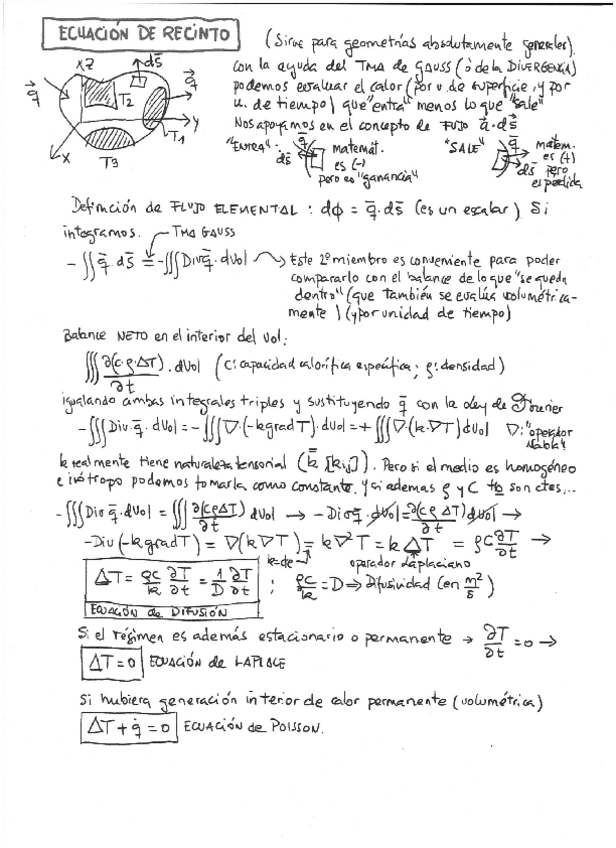 ECUACIÓN DE RECINTO
(Sirve para geometrías absolutamente generales).
con la ayuda del TMA de GAUSS (ó de la DIVERGENCIA)
podemos evaluar el calor (por u. de superficie, y por
u. de tiempo) que "entra" menos lo que "sale"
Nos apoyamos en el concepto de FLUJO a⃗·ds⃗
X Z ds⃗
q⃗ T2 q⃗
Y
X T3 T1
"ENTRA" q̄ ds̄ matemát. es (-) pero es "ganancia"
"SALE" q̄ ds̄ matem. es (+) pero es perdida
Definición de FLUJO ELEMENTAL : dϕ = q̄·ds̄ (es un escalar) Si
integramos. TMA GAUSS
-∬q̄·ds̄ = -∭Div q̄·dVol → Este 2º miembro es conveniente para poder
compararlo con el balance de lo que "se queda
dentro" (que también se evalúa volumétrica-
mente) (y por unidad de tiempo)
Balance NETO en el interior del vol:
∭ ∂(c·ρ·ΔT)/∂t · dVol (C: capacidad calorífica específica; ρ: densidad)
igualando ambas integrales triples y sustituyendo q̄ con la ley de Fourier
-∭Div q̄·dVol = -∭∇·(-k grad T)·dVol = +∭∇(k·∇T)dVol ∇: "operador Nabla"
k realmente tiene naturaleza tensorial (k̿ [kij]). Pero si el medio es homogéneo
e isótropo podemos tomarla como constante. Y si ademas ρ y C son ctes,..
-∭Div q̄·dVol = ∭ ∂(cρΔT)/∂t dVol → -Div q̄·dVol = ∂(cρΔT)/∂t dVol →
-Div(-k grad T) = ∇(k∇T) = k∇²T = kΔT = ρC ∂T/∂t →
k=cte operador Laplaciano
ΔT = ρC/k ∂T/∂t = 1/D ∂T/∂t ; ρC/k = D ⇒ Difusividad (en m²/s)
ECUACIÓN de DIFUSIÓN
Si el régimen es además estacionario o permanente → ∂T/∂t = 0 →
ΔT = 0 ECUACIÓN de LAPLACE
Si hubiera generación interior de calor permanente (volumétrica)
ΔT + q̇ = 0 ECUACIÓN de POISSON.